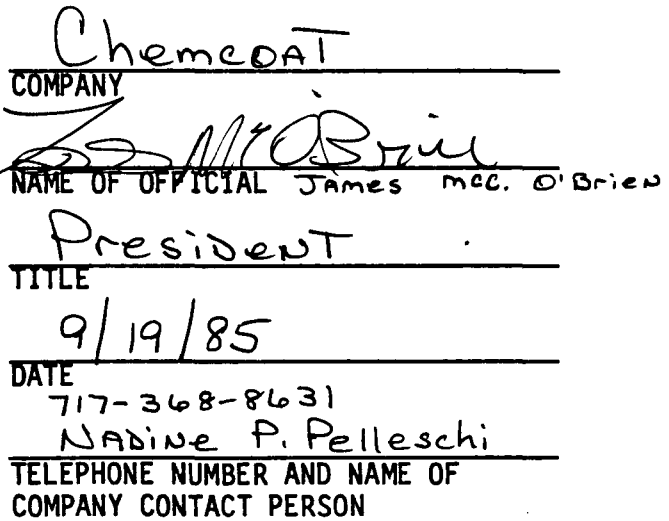 ChemcoaT
COMPANY
Jas McO'Brien
NAME OF OFFICIAL James mcc. O'Brien
PresidenT
TITLE
9/19/85
DATE
717-368-8631
NADiNe P. Pelleschi
TELEPHONE NUMBER AND NAME OF
COMPANY CONTACT PERSON